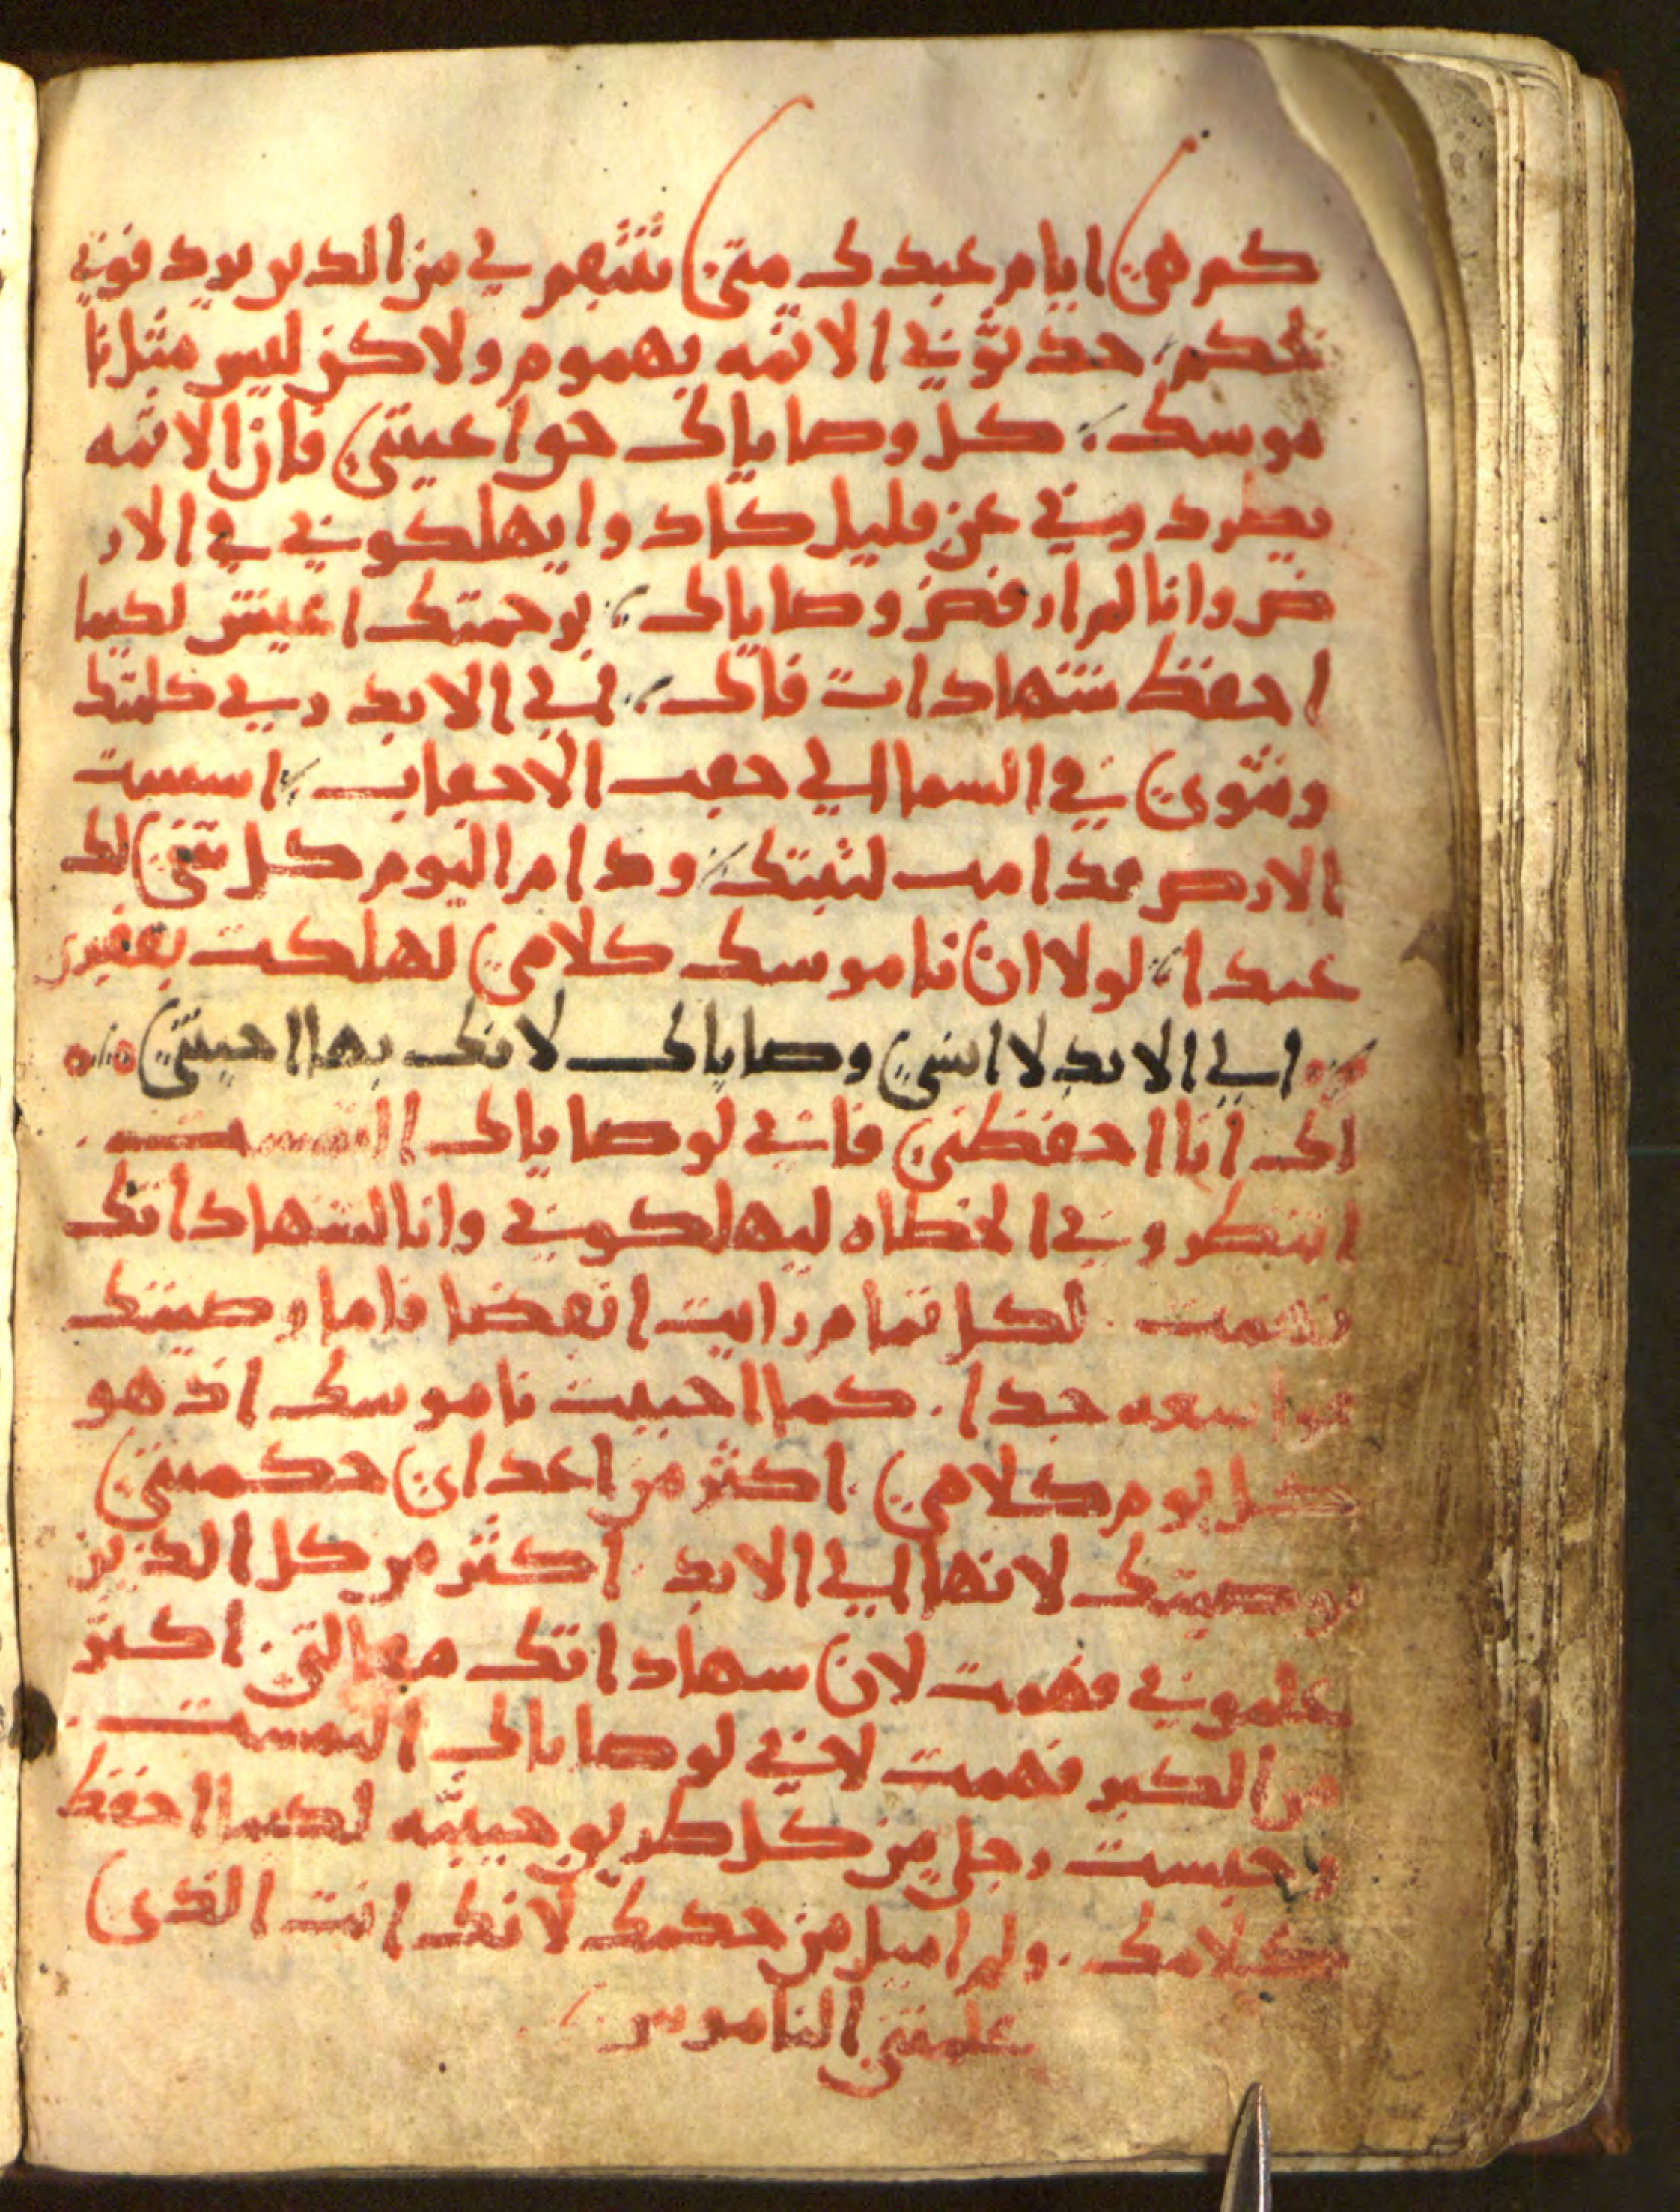 كم هي ايام عبدك متي تنتقم لي من الذين يرد فوني
بحكم حد ثوني الاثمه بهموم ولاكن ليس مثل نا
موسك كل وصاياك حق اعينتي فان الاثمه
يطرد وني عن قليل كاد وا يهلكوني في الار
ض وانا لم ارفض وصاياك برحمتك اعيش لكيما
احفظ شهادات فاك الي الابد رب كلمتك
وتثوي في السما الي حقب الاحقاب اسست
الارض فدامت لثبتك ودام اليوم كل شي لك
عبدا لولا ان ناموسك كلامي لهلكت بفقري
الي الابد لا انسي وصاياك لانك بها احييتني
لك انا احفظني فاني لوصاياك التمست
انتظروني الخطاه ليهلكوني وانا لشهاداتك
فهمت لكل تمام رايت انقضا فاما وصيتك
فواسعه جدا كما احببت ناموسك اذ هو
كل يوم كلامي اكثر من اعداي حكمتني
بوصيتك لانها الي الابد اكثر من كل الذين
علموني فهمت لان سهاداتك هي التي اكثر
من الكبر فهمت لاني لوصاياك التمست
وحبست رجلي من كل طريق خبيثه لكيما احفظ
كلامك ولم اميل من حكمك لانك انت الذي
علمتني الناموس